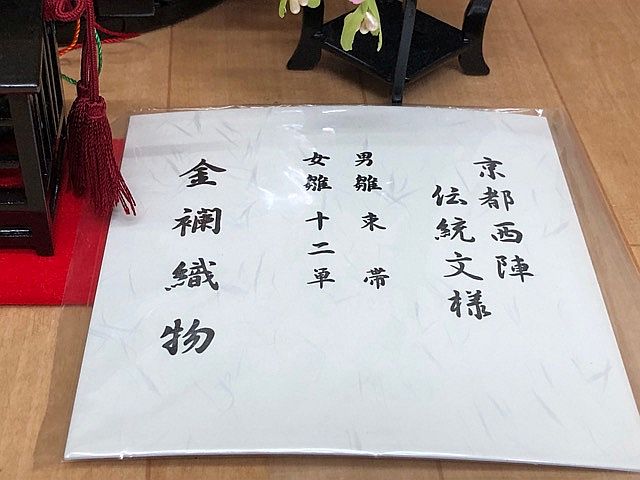 京都西陣
伝統文様
男雛束帯
女雛十二単
金襴織物